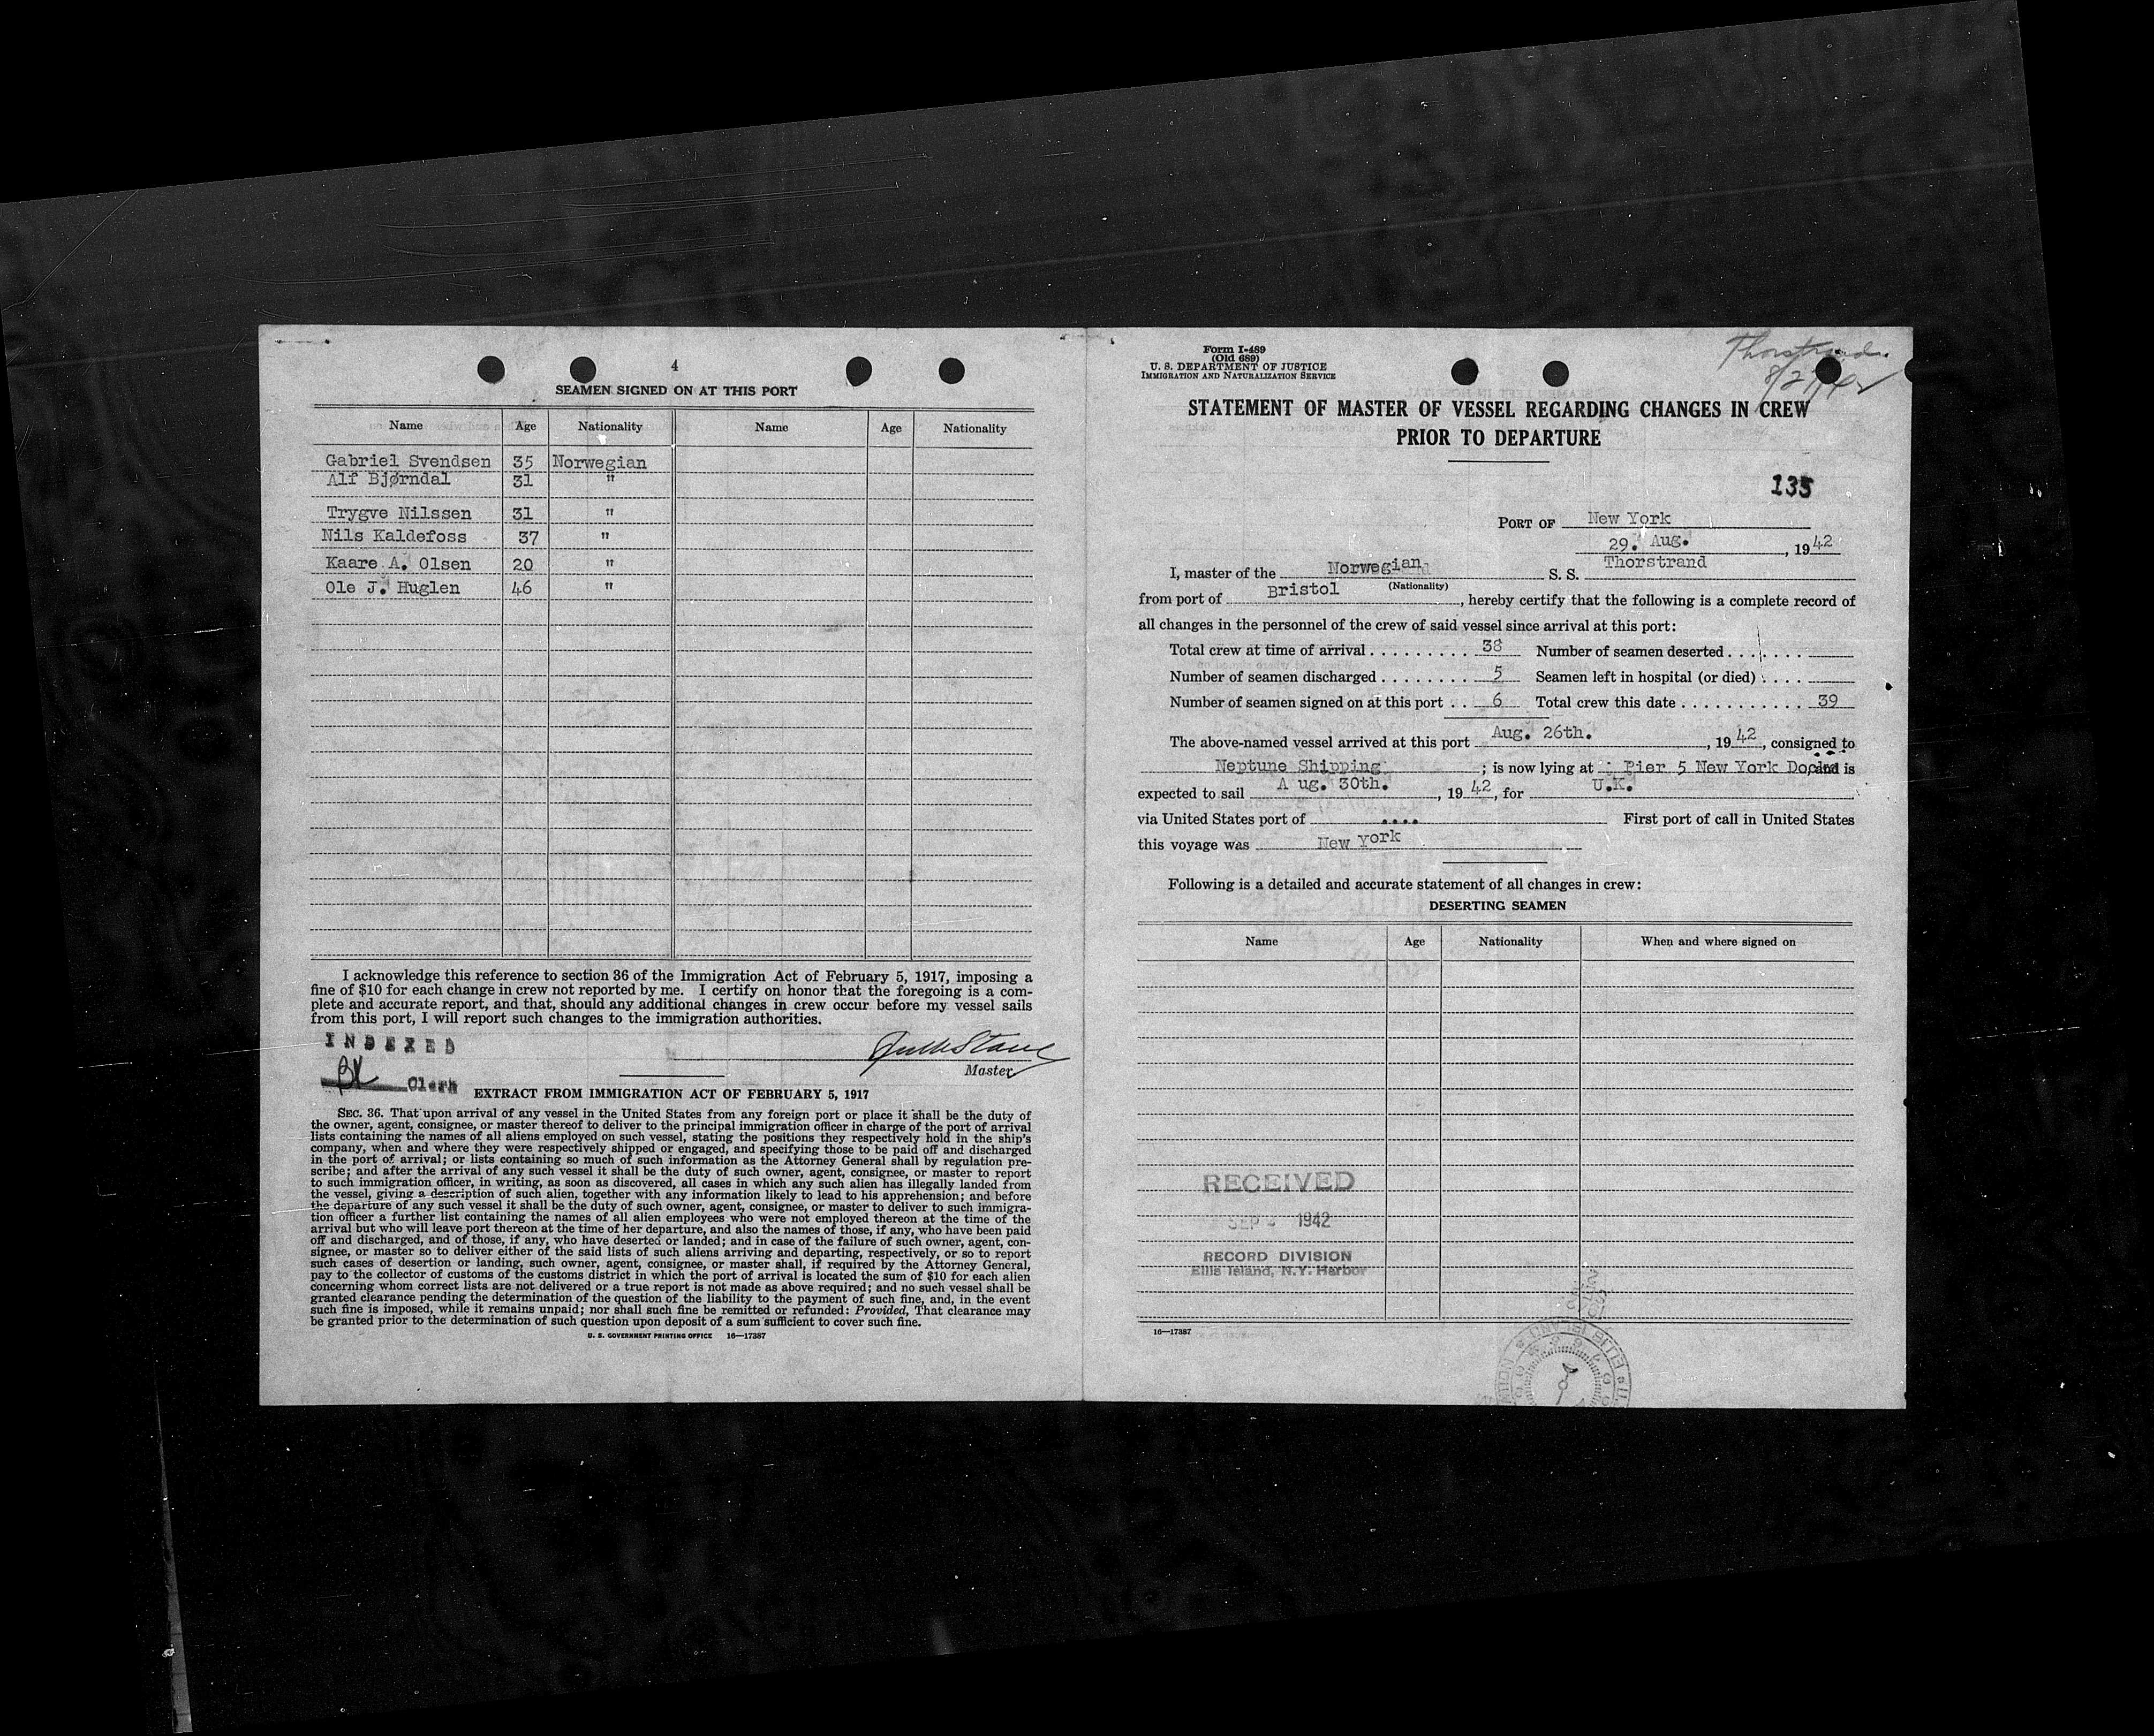 4
SEAMEN SIGNED ON AT THIS PORT
Name Age Nationality Name Age Nationality
Gabriel Svendsen 35 Norwegian
Alf Bjørndal 31 "
Trygve Nilssen 31 "
Nils Kaldefoss 37 "
Kaare A. Olsen 20 "
Ole J. Huglen 46 "
I acknowledge this reference to section 36 of the Immigration Act of February 5, 1917, imposing a
fine of $10 for each change in crew not reported by me. I certify on honor that the foregoing is a com-
plete and accurate report, and that, should any additional changes in crew occur before my vessel sails
from this port, I will report such changes to the immigration authorities.
INDEXED
Clerk
Master
EXTRACT FROM IMMIGRATION ACT OF FEBRUARY 5, 1917
SEC. 36. That upon arrival of any vessel in the United States from any foreign port or place it shall be the duty of
the owner, agent, consignee, or master thereof to deliver to the principal immigration officer in charge of the port of arrival
lists containing the names of all aliens employed on such vessel, stating the positions they respectively hold in the ship's
company, when and where they were respectively shipped or engaged, and specifying those to be paid off and discharged
in the port of arrival; or lists containing so much of such information as the Attorney General shall by regulation pre-
scribe; and after the arrival of any such vessel it shall be the duty of such owner, agent, consignee, or master to report
to such immigration officer, in writing, as soon as discovered, all cases in which any such alien has illegally landed from
the vessel, giving a description of such alien, together with any information likely to lead to his apprehension; and before
the departure of any such vessel it shall be the duty of such owner, agent, consignee, or master to deliver to such immigra-
tion officer a further list containing the names of all alien employees who were not employed thereon at the time of the
arrival but who will leave port thereon at the time of her departure, and also the names of those, if any, who have been paid
off and discharged, and of those, if any, who have deserted or landed; and in case of the failure of such owner, agent, con-
signee, or master so to deliver either of the said lists of such aliens arriving and departing, respectively, or so to report
such cases of desertion or landing, such owner, agent, consignee, or master shall, if required by the Attorney General,
pay to the collector of customs of the customs district in which the port of arrival is located the sum of $10 for each alien
concerning whom correct lists are not delivered or a true report is not made as above required; and no such vessel shall be
granted clearance pending the determination of the question of the liability to the payment of such fine, and, in the event
such fine is imposed, while it remains unpaid; nor shall such fine be remitted or refunded: Provided, That clearance may
be granted prior to the determination of such question upon deposit of a sum sufficient to cover such fine.
U. S. GOVERNMENT PRINTING OFFICE 16—17387
Form I-489
(Old 689)
U. S. DEPARTMENT OF JUSTICE
IMMIGRATION AND NATURALIZATION SERVICE
Thorstrand.
STATEMENT OF MASTER OF VESSEL REGARDING CHANGES IN CREW
PRIOR TO DEPARTURE
135
PORT OF New York
29. Aug. , 1942
I, master of the Norwegian S. S. Thorstrand
(Nationality)
from port of Bristol , hereby certify that the following is a complete record of
all changes in the personnel of the crew of said vessel since arrival at this port:
Total crew at time of arrival . . . . . . . . . 38 Number of seamen deserted . . . . . . . .
Number of seamen discharged . . . . . . . . 5 Seamen left in hospital (or died) . . . . .
Number of seamen signed on at this port . . 6 Total crew this date . . . . . . . . . . . 39
The above-named vessel arrived at this port Aug. 26th. , 1942, consigned to
Neptune Shipping ; is now lying at Pier 5 New York Docks and is
expected to sail A ug. 30th. , 1942, for U.K.
via United States port of .... First port of call in United States
this voyage was New York
Following is a detailed and accurate statement of all changes in crew:
DESERTING SEAMEN
Name Age Nationality When and where signed on
RECEIVED
SEP 1942
RECORD DIVISION
Ellis Island, N.Y. Harbor
16—17387